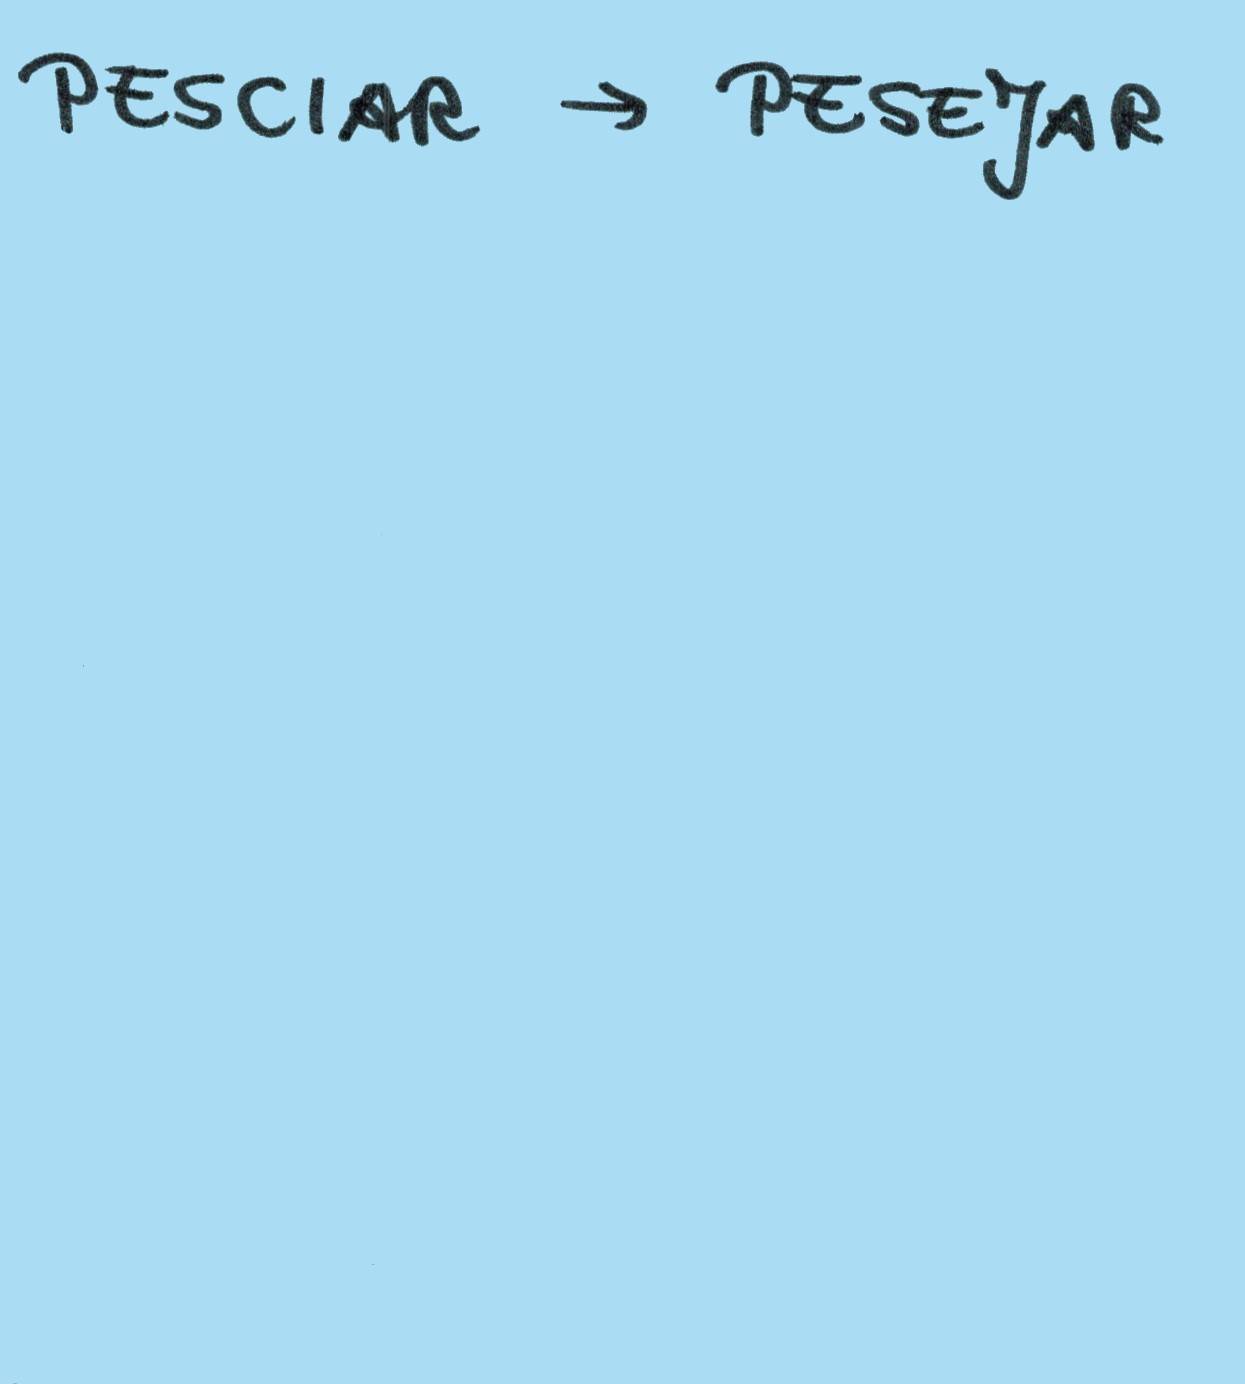 PESCIAR → PESEJAR